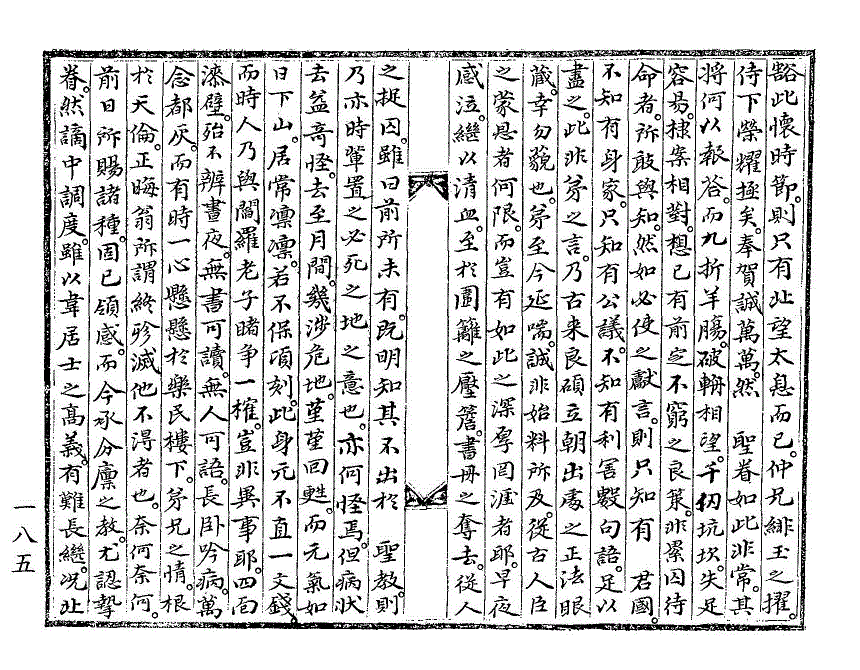 豁此懷時節則只有北望太息而已仲兄緋玉之擢
侍下榮耀極矣奉賀誠萬萬然 聖眷如此非常其
將何以報答而九折羊腸破輈相望千仞坑坎失足
容易棣案相對想已有前定不窮之良策非纍囚待
命者所敢與知然如必使之獻言則只知有 君國
不知有身家只知有公議不知有利害數句語足以
盡之此非弟之言乃古來良碩立朝出處之正法眼
藏幸勿藐也弟至今延喘誠非始料所及從古人臣
之蒙恩者何限而豈有如此之深厚罔涯者耶早夜
感泣繼以清血至於圍籬之壓簷書冊之奪去從人
之捉囚雖曰前所未有旣明知其不出於 聖教則
乃亦時輩置之必死之地之意也亦何怪焉但病狀
去益奇怪去至月間幾涉危地堇堇回甦而元氣如
日下山居常凛凛若不保頃刻此身元不直一文錢
而時人乃與閻羅老子睹争一榷豈非異事耶四面
漆壁殆不辨晝夜無書可讀無人可語長臥吟病萬
念都灰而有時一心懸懸於樂民樓下弟兄之情根
於天倫正晦翁所謂終殄滅他不得者也奈何奈何
前日所賜諸種固已領感而今承分廩之教尤認摯
眷然謫中調度雖以韋居士之高義有難長繼况北
一八五